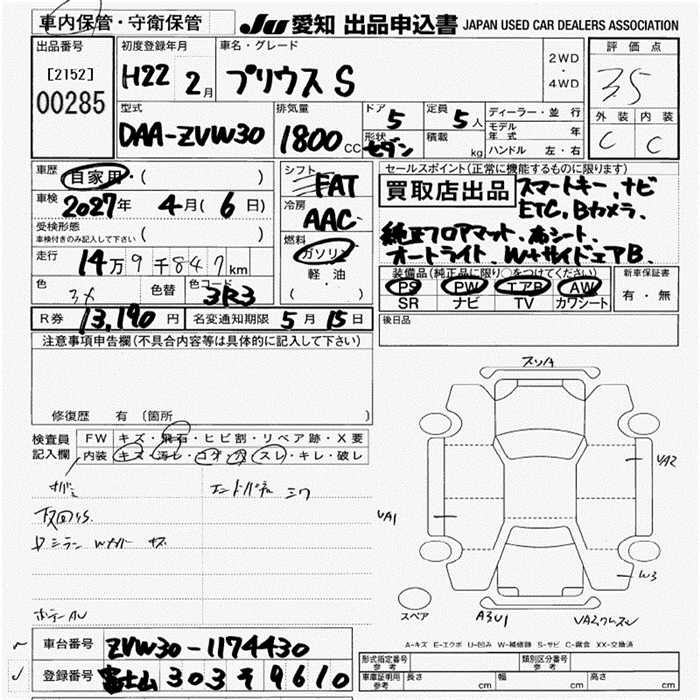 車内保管・守衛保管 JU 愛知 出品申込書 JAPAN USED CAR DEALERS ASSOCIATION
出品番号 初度登録年月 車名・グレード 2WD・4WD 評価点
[2152] H22 2月 プリウス S 3.5
00285
型式 排気量 ドア 5 定員 5人 ディーラー・並行 外装 内装
DAA-ZVW30 1800cc 形状 セダン 積載 kg モデル年式 年 C C
ハンドル 左・右
車歴 自家用・( ) シフト FAT セールスポイント(正常に機能するものに限ります)
車検 2027年 4月(6日) 冷房 AAC 買取店出品 スマートキー、ナビ
ETC、Bカメラ、
受検形態 ( ) 純正フロアマット、
車検付きのみ記入して下さい
オートライト、W+サイドエアB
走行 14万9千847km 燃料 ガソリン 装備品(純正品に限り○をつけてください) 新車保証書
軽油 PS PW エアB AW 有・無
色 色替 色コード 3R3 ( ) SR ナビ TV カワシート
R券 13,190円 名変通知期限 5月15日 後日品
注意事項申告欄(不具合内容等は具体的に記入して下さい)
修復歴 有(箇所 )
検査員 FW キズ・飛石・ヒビ割・リペア跡・X要
記入欄 内装 キズ・汚レ・コゲ・穴・スレ・キレ・破レ
スリA
VA2
VA1
W3
スペア A3U1
A-キズ E-エクボ U-凹み W-補修跡 S-サビ C-腐食 XX-交換済
車台番号 ZVW30-1174430
登録番号 富士山 303 そ 9610
形式指定番号 参考 類別区分番号 参考
車庫証明用 参考 長さ cm 幅 cm 高さ cm